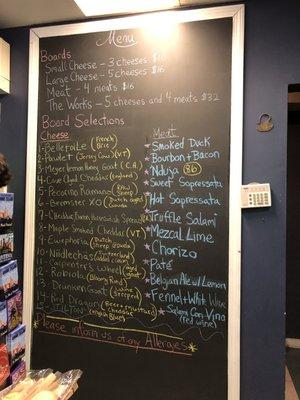 Menu
Boards
Small Cheese - 3 cheeses $10
Large Cheese - 5 cheeses $16
Meat - 4 meats $16
The Works - 5 cheeses and 4 meats $32
Board Selections
Cheese
1- Belletoile (French Brie)
2- Pawlet (Jersey Cow) (VT)
3- Meyer lemon Honey Goat (C.A.)
4- Cave Aged Cheddar (England)
5- Pecorino Romano (Raw Sheep)
6- Beemster XO (Dutch Aged Gouda)
7- Cheddar Horseradish Spread
8- Maple Smoked Cheddar (VT)
9- Ewephoria (Dutch Sheep Gouda)
10- (Switzerland)
11- Carpenter's Wheel (Aged goat)
12- Robiola (Bloomy Rind)
13- Drunken Goat (wine steeped)
14- Red Dragon (Beer + Mustard Cheddar)
STILTON (English Blue)
Meat
Smoked Duck
Bourbon + Bacon
Nduja
Sweet Sopressata
Hot Sopressata
Truffle Salami
Mezcal Lime
Chorizo
Paté
Belgian Ale w/ Lemon
Fennel + White Wine
Salami Con Vino (red wine)
*Please inform us of any Allergies*